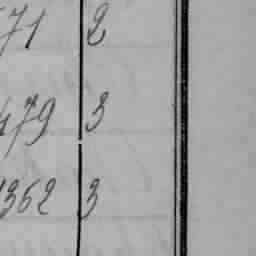 71 2
479 3
1362 3